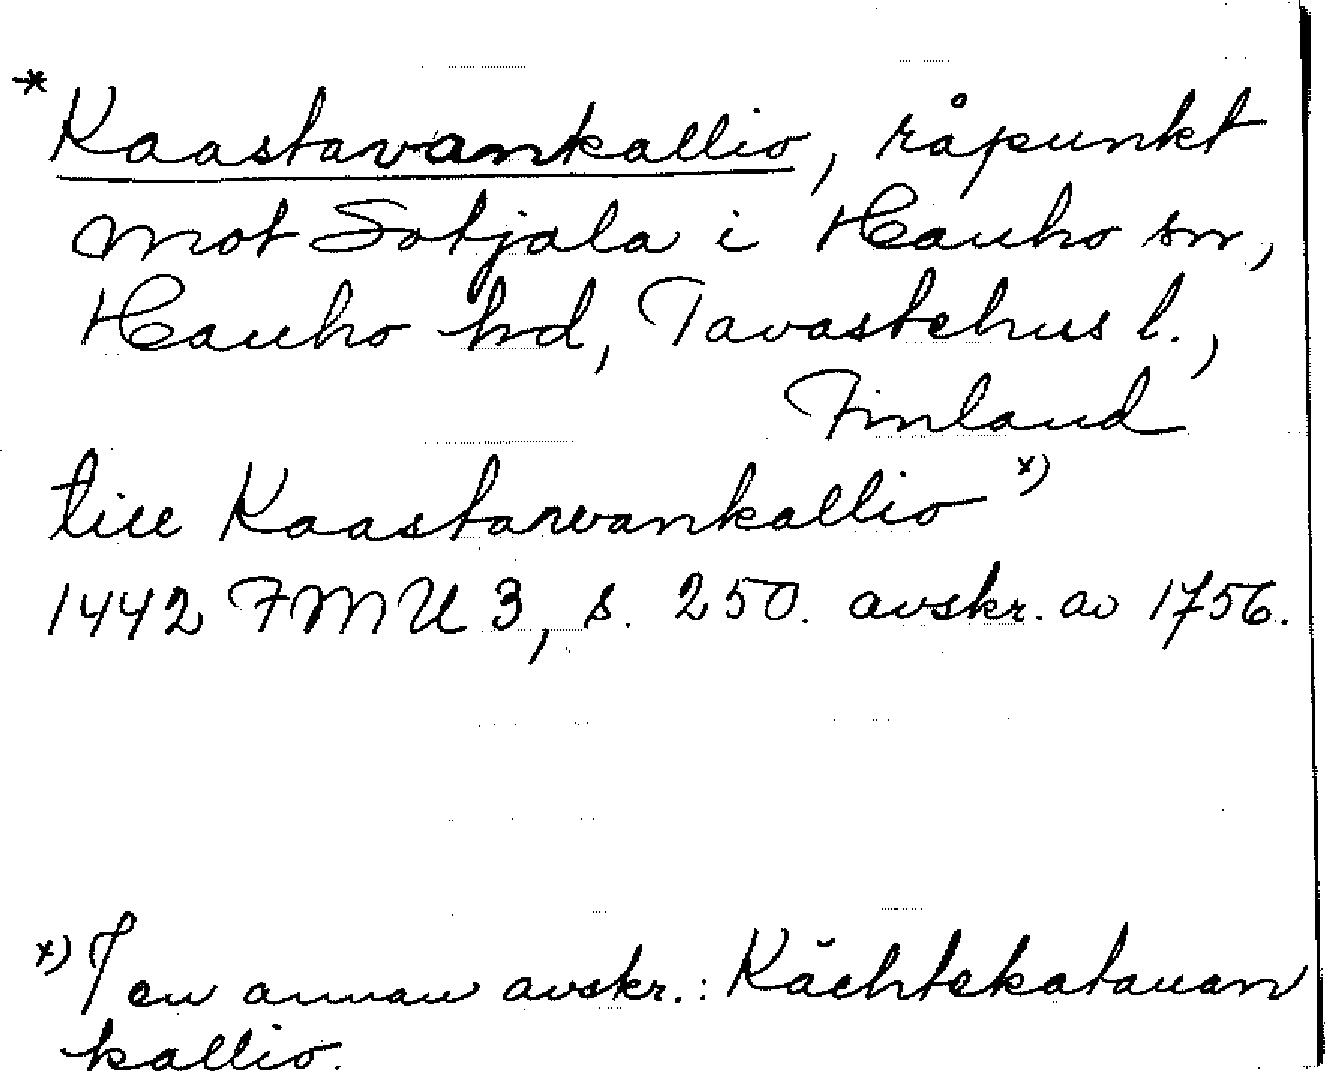 * Kaastavankallio, råpunkt
mot Sotjala i Hauho sn,
Hauho hd, Tavastehus l.,
Finland
till Kaastarvankallio x)
1442 FMU 3, s. 250. avskr. av 1756.
x) I en annan avskr.: Kächtekatauan
kallio.